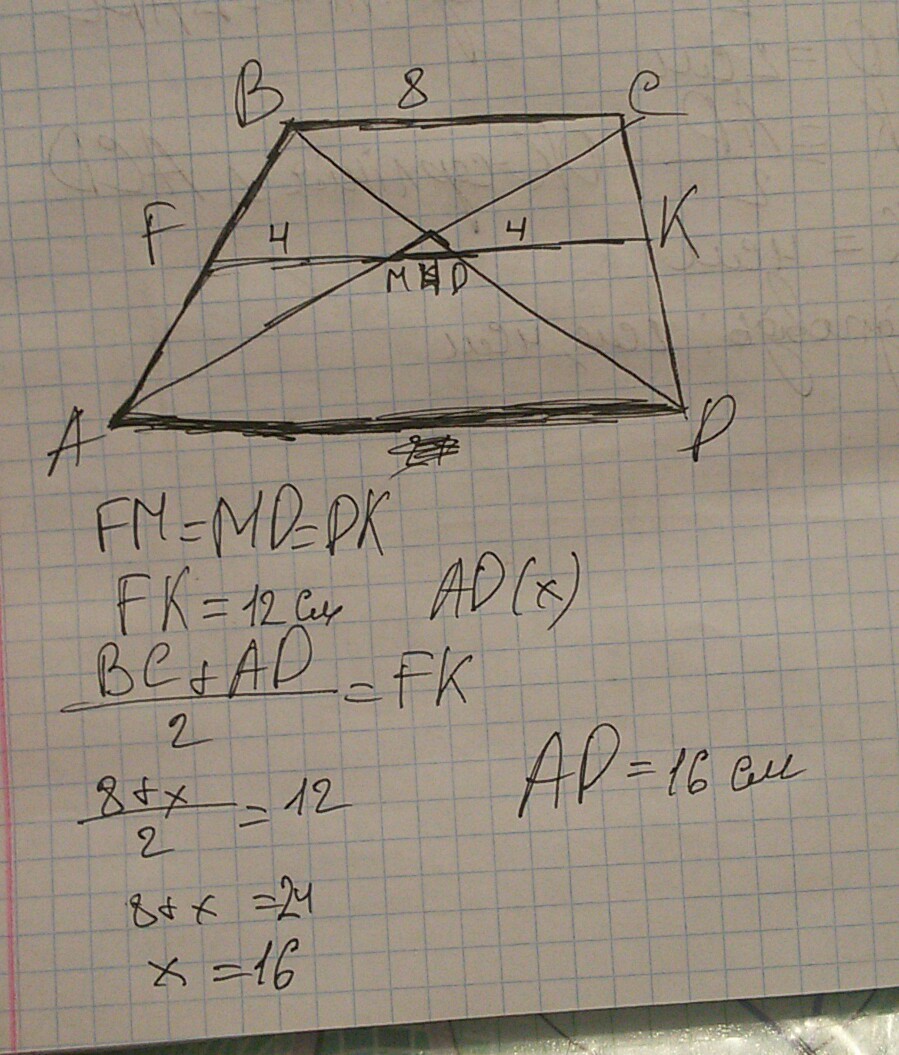 B 8 C
F 4 4 K
M 4 D
A D
FM=MD=DK
FK=12см AD(x)
BC+AD
2
=FK
8+x
2
=12
AD=16 см
8+x=24
x=16